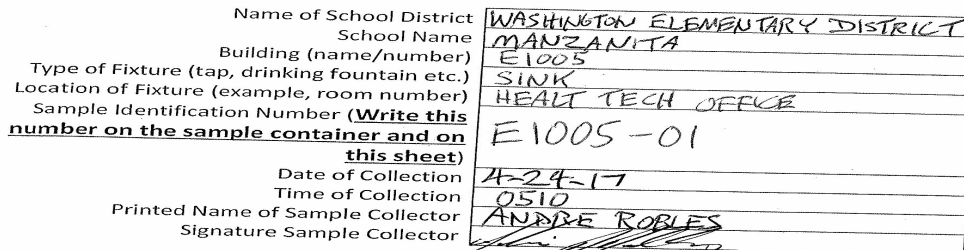 Name of School District WASHINGTON ELEMENTARY DISTRICT
School Name MANZANITA
Building (name/number) E1005
Type of Fixture (tap, drinking fountain etc.) SINK
Location of Fixture (example, room number) HEALT TECH OFFICE
Sample Identification Number (Write this
number on the sample container and on
this sheet) E1005-01
Date of Collection 4-24-17
Time of Collection 0510
Printed Name of Sample Collector ANDRE ROBLES
Signature Sample Collector